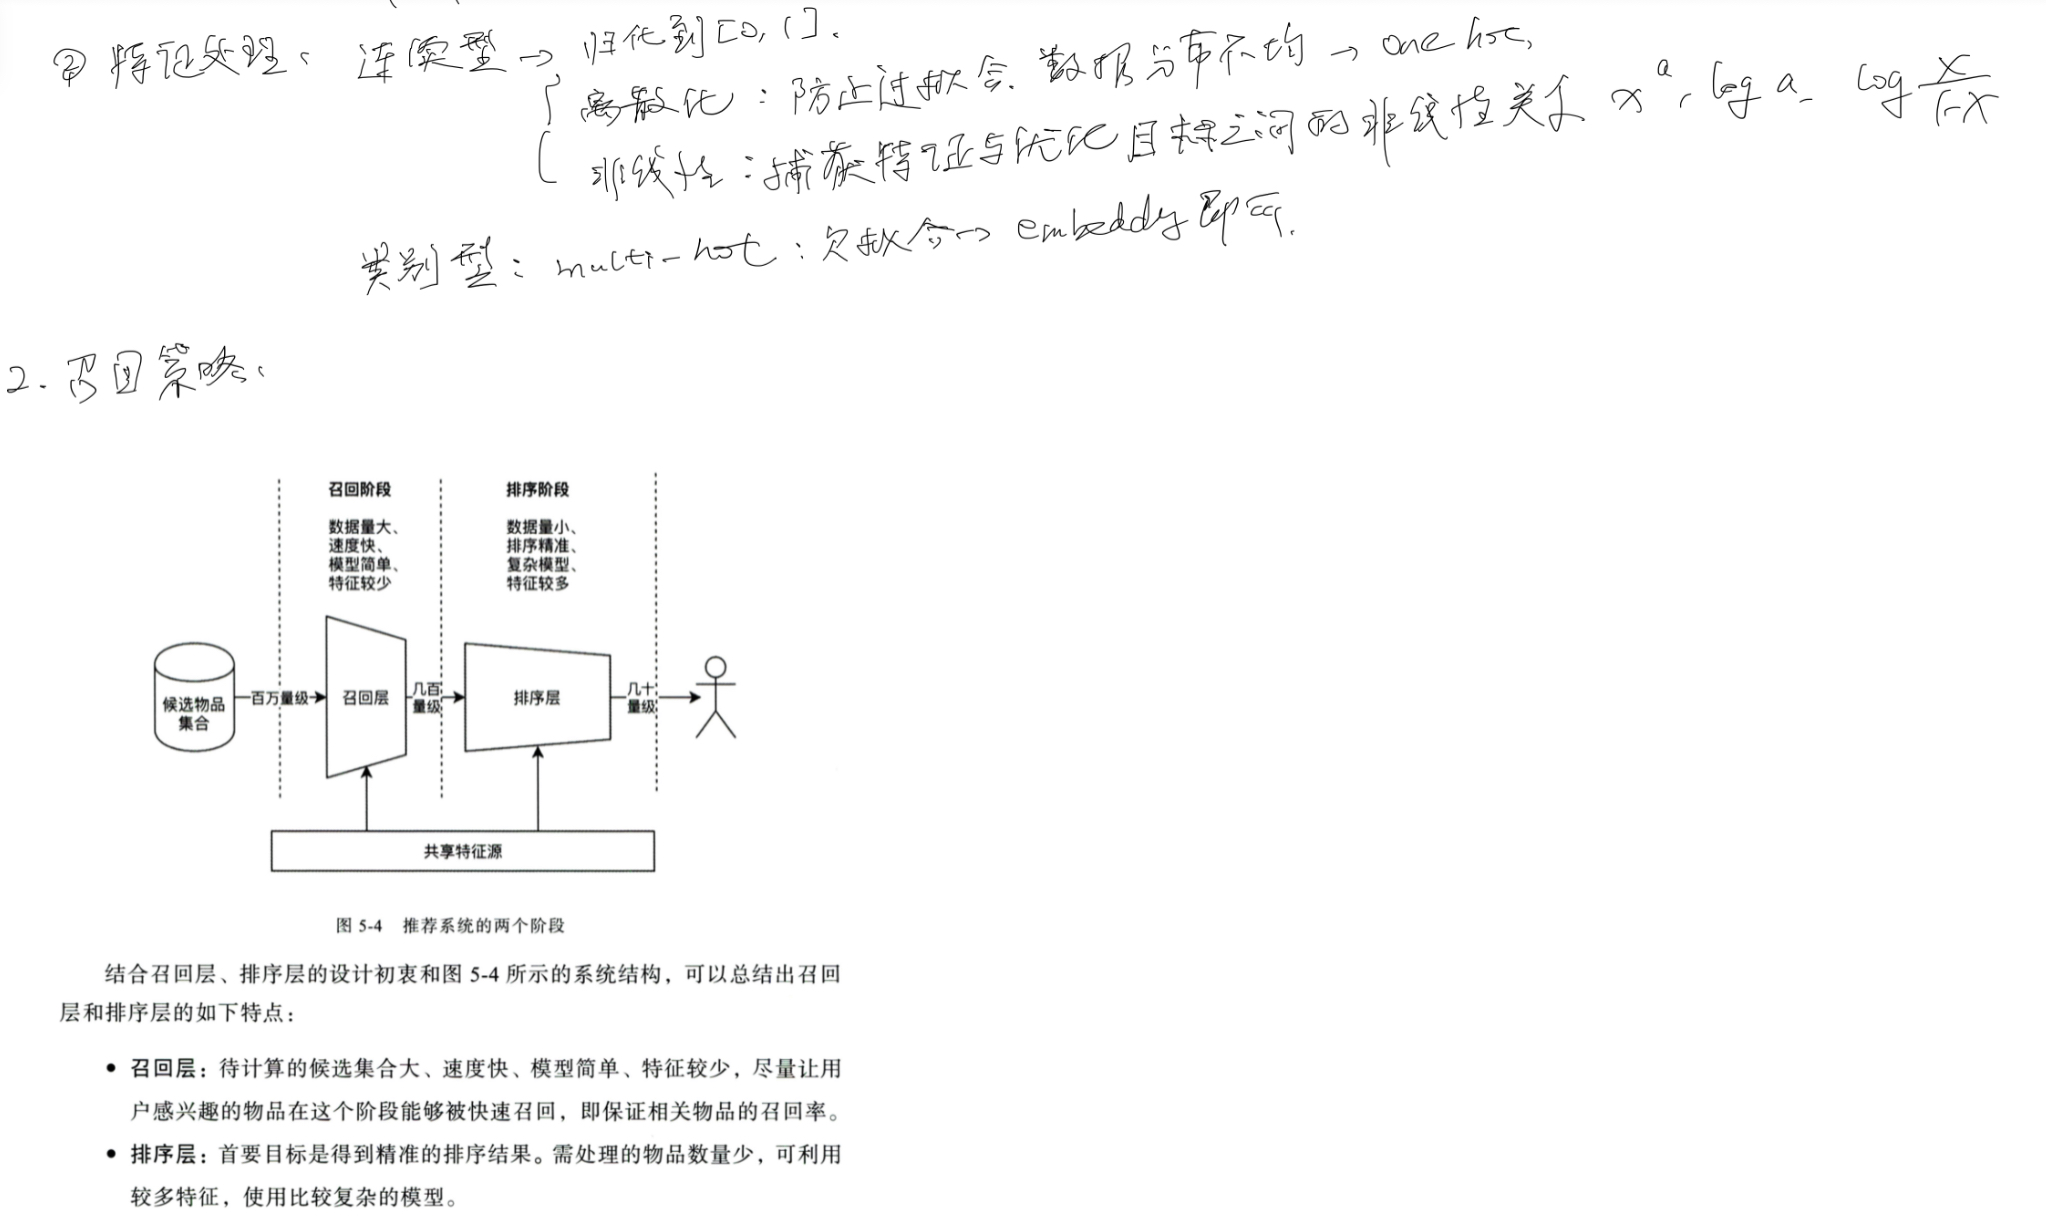 ④ 特征处理、 连续型 → 归化到[0,1].
离散化：防止过拟合. 数据分布不均 → one hot,
非线性：捕获特征与优化目标之间的非线性关系 x^a, log a. log x/(1-x)
类别型：multi-hot：欠拟合→ embeddg 即可.
2. 召回策略、
召回阶段 排序阶段
数据量大、 数据量小、
速度快、 排序精准、
模型简单、 复杂模型、
特征较少 特征较多
候选物品
集合
百万量级
召回层
几百
量级
排序层
几十
量级
共享特征源
图 5-4 推荐系统的两个阶段
结合召回层、排序层的设计初衷和图 5-4 所示的系统结构，可以总结出召回
层和排序层的如下特点：
• 召回层：待计算的候选集合大、速度快、模型简单、特征较少，尽量让用
户感兴趣的物品在这个阶段能够被快速召回，即保证相关物品的召回率。
• 排序层：首要目标是得到精准的排序结果。需处理的物品数量少，可利用
较多特征，使用比较复杂的模型。